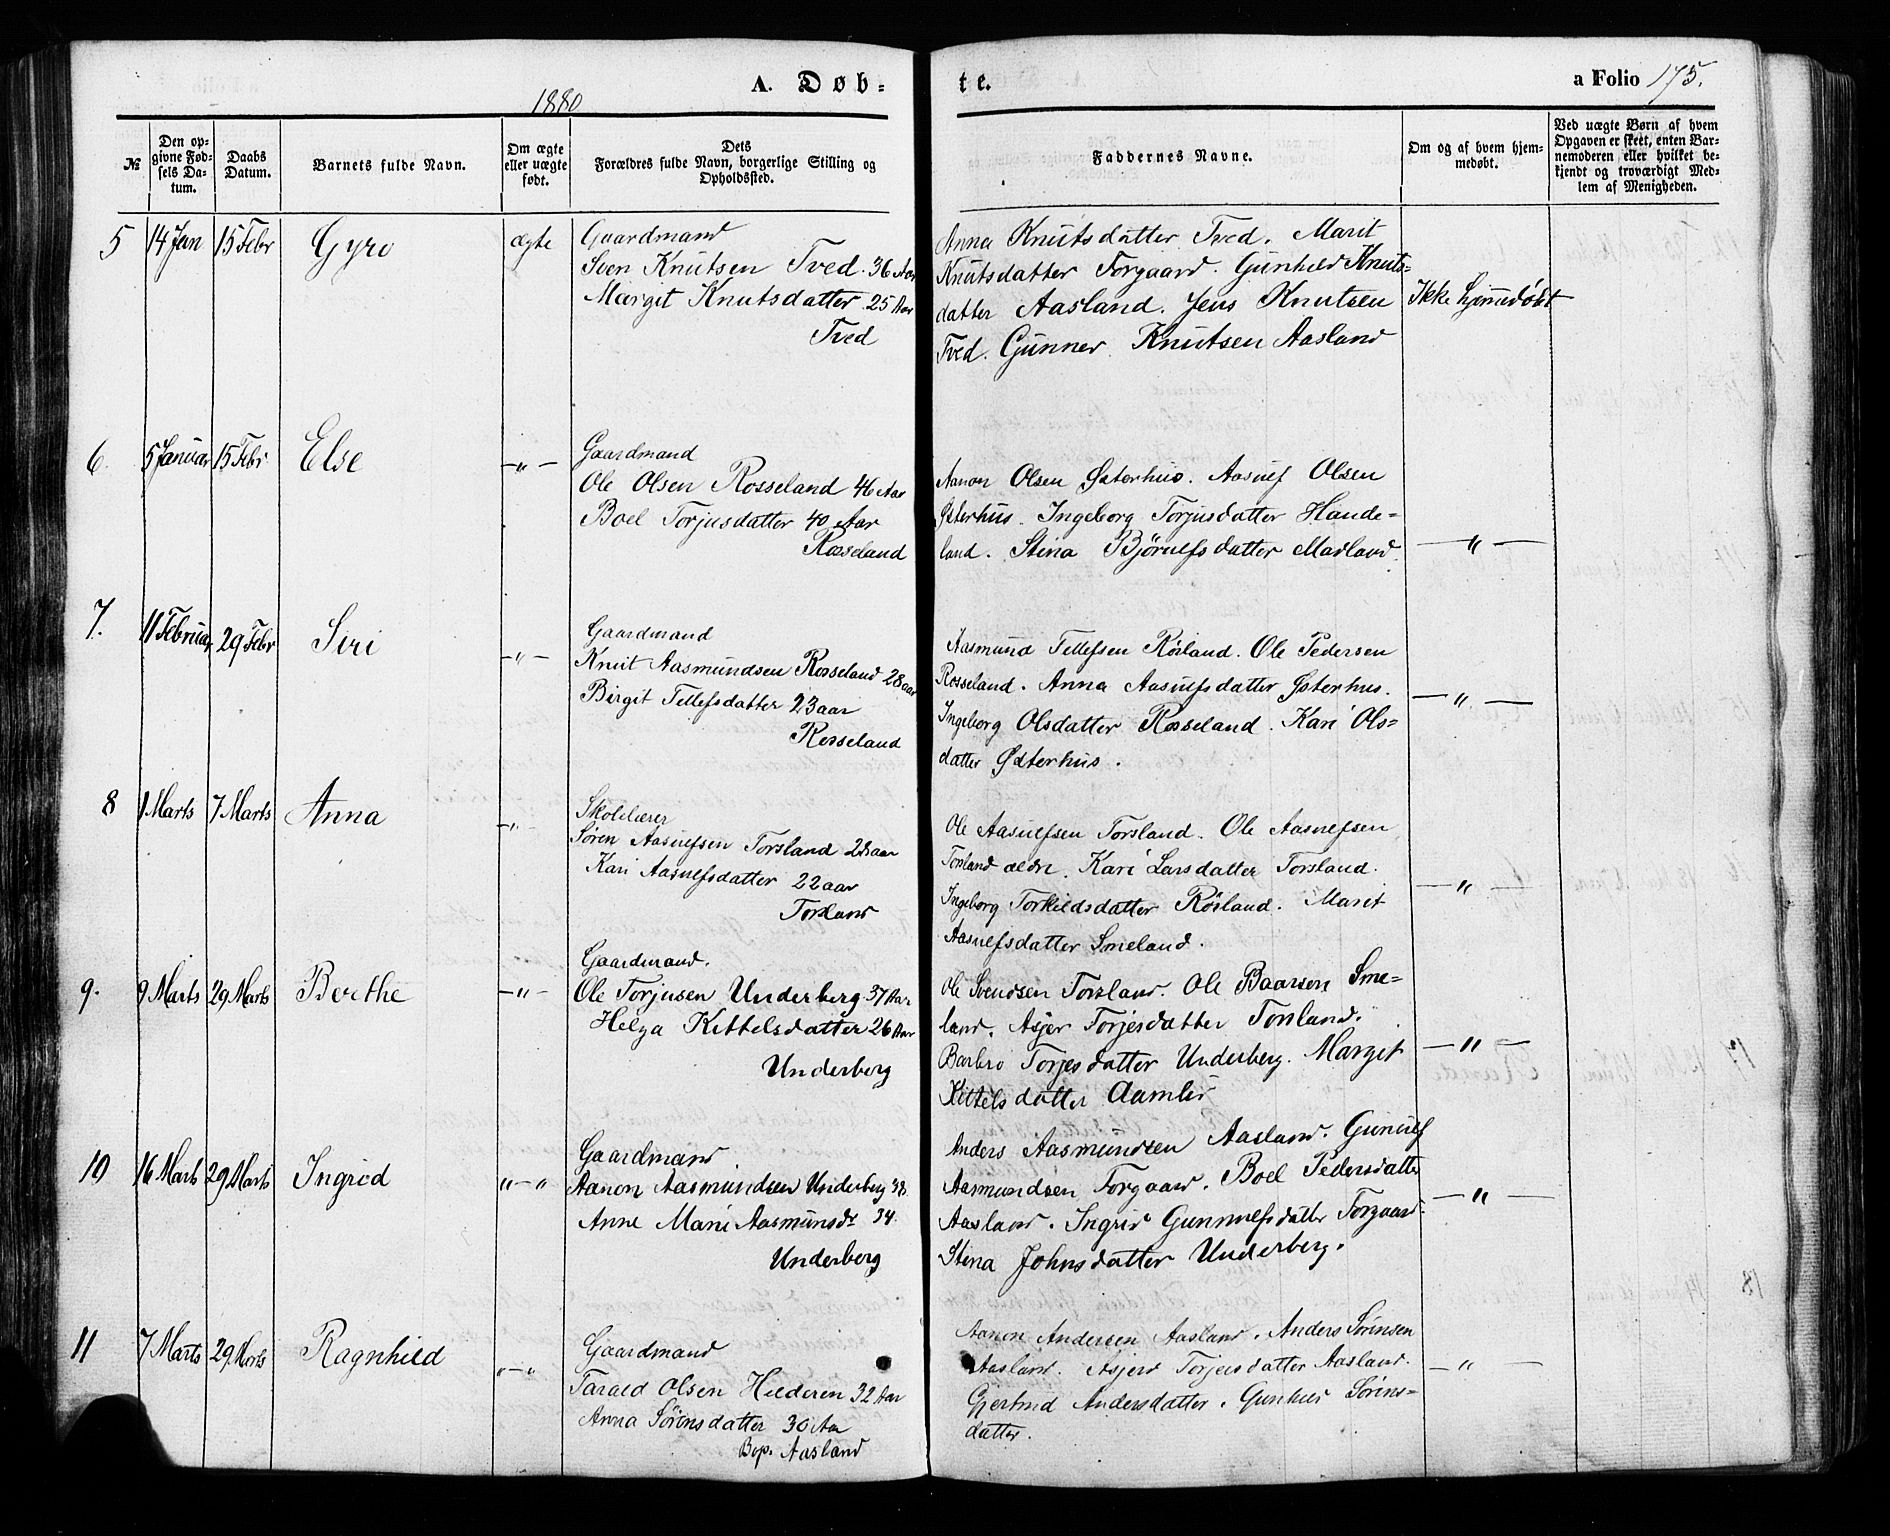 1880
A. Døb-
te.
a Folio 175.
№
Den opgivne Fødsels Datum.
Daabs Datum.
Barnets fulde Navn.
Om ægte eller uægte født.
Dets Forældres fulde Navn, borgerlige Stilling og Opholdssted.
Faddernes Navne.
Om og af hvem hjemmedøbt.
Ved uægte Børn af hvem Opgaven er skeet, enten Barnemoderen eller hvilket bekjendt og troværdigt Medlem af Menigheden.
5 14 Jan 15 Febr Gyro ægte
Gaardmand
Sven Knutsen Tved. 36 Aar
Margit Knutsdatter 25 Aar
Tved
Anna Knutsdatter Tved. Marit
Knutsdatter Torgaard. Gunhild Knuts=
datter Aasland. Jens Knutsen
Tved. Gunner Knutsen Aasland
Ikke hjemmedøbt
6. 5 Januar 15 Febr Else —"—
Gaardmand
Ole Olsen Rosseland 46 Aar
Boel Torjusdatter 40 Aar
Rosseland
Aanon Olsen Østerhus. Aasulf Olsen
Østerhus. Ingeborg Torjusdatter Hande=
land. Stina Bjørulfsdatter Masland.
—"—
7. 11 Februar 29 Febr Siri —"—
Gaardmand
Knut Aasmundsen Rosseland 28 aar
Birgit Tellefsdatter 23 aar
Rosseland
Aasmund Tellefsen Røsland. Ole Pedersen
Rosseland. Anna Aasulfsdatter Østerhus.
Ingeborg Olsdatter Rosseland. Kari Ols=
datter Østerhus.
—"—
8 1 Marts 7 Marts Anna —"—
Skolelærer
Søren Aasulfsen Torsland 28 aar
Kari Aasulfsdatter 22 aar
Torsland
Ole Aasulfsen Torsland. Ole Aasulfsen
Torsland ældre. Kari Larsdatter Torsland.
Ingeborg Torkildsdatter Røsland. Marit
Aasulfsdatter Smeland.
—"—
9. 9 Marts 29 Marts Berthe —"—
Gaardmand.
Ole Torjusen Underberg 37 Aar
Helga Kittelsdatter 26 Aar
Underberg
Ole Svendsen Torsland. Ole Baarsen Sme=
land. Asjer Torjesdatter Torsland.
Barbro Torjesdatter Underberg. Marget
Kittelsdatter Aamli
—"—
10 16 Marts 29 Marts Ingrid "—"
Gaardmand
Aanon Aasmundsen Underberg 38.
Anne Marie Aasmundsd 34.
Underberg
Anders Aasmundsen Aasland. Gunulf
Aasmundsen Torgaard. Boel Pedersdatter
Aasland. Ingrid Gunnulfsdatter Torgaard.
Stena Johnsdatter Underberg.
—"—
11 7 Marts 29 Marts Ragnhild "—"
Gaardmand
Tarald Olsen Hilderen 32 Aar
Anna Sørensdatter 30 Aar
Bop. Aasland
Aanon Andersen Aasland. Anders Sørensen
Aasland. Asjerd Torjusdatter Aasland.
Gjertrud Andersdatter. Gunhild Sørens=
datter.
—"—